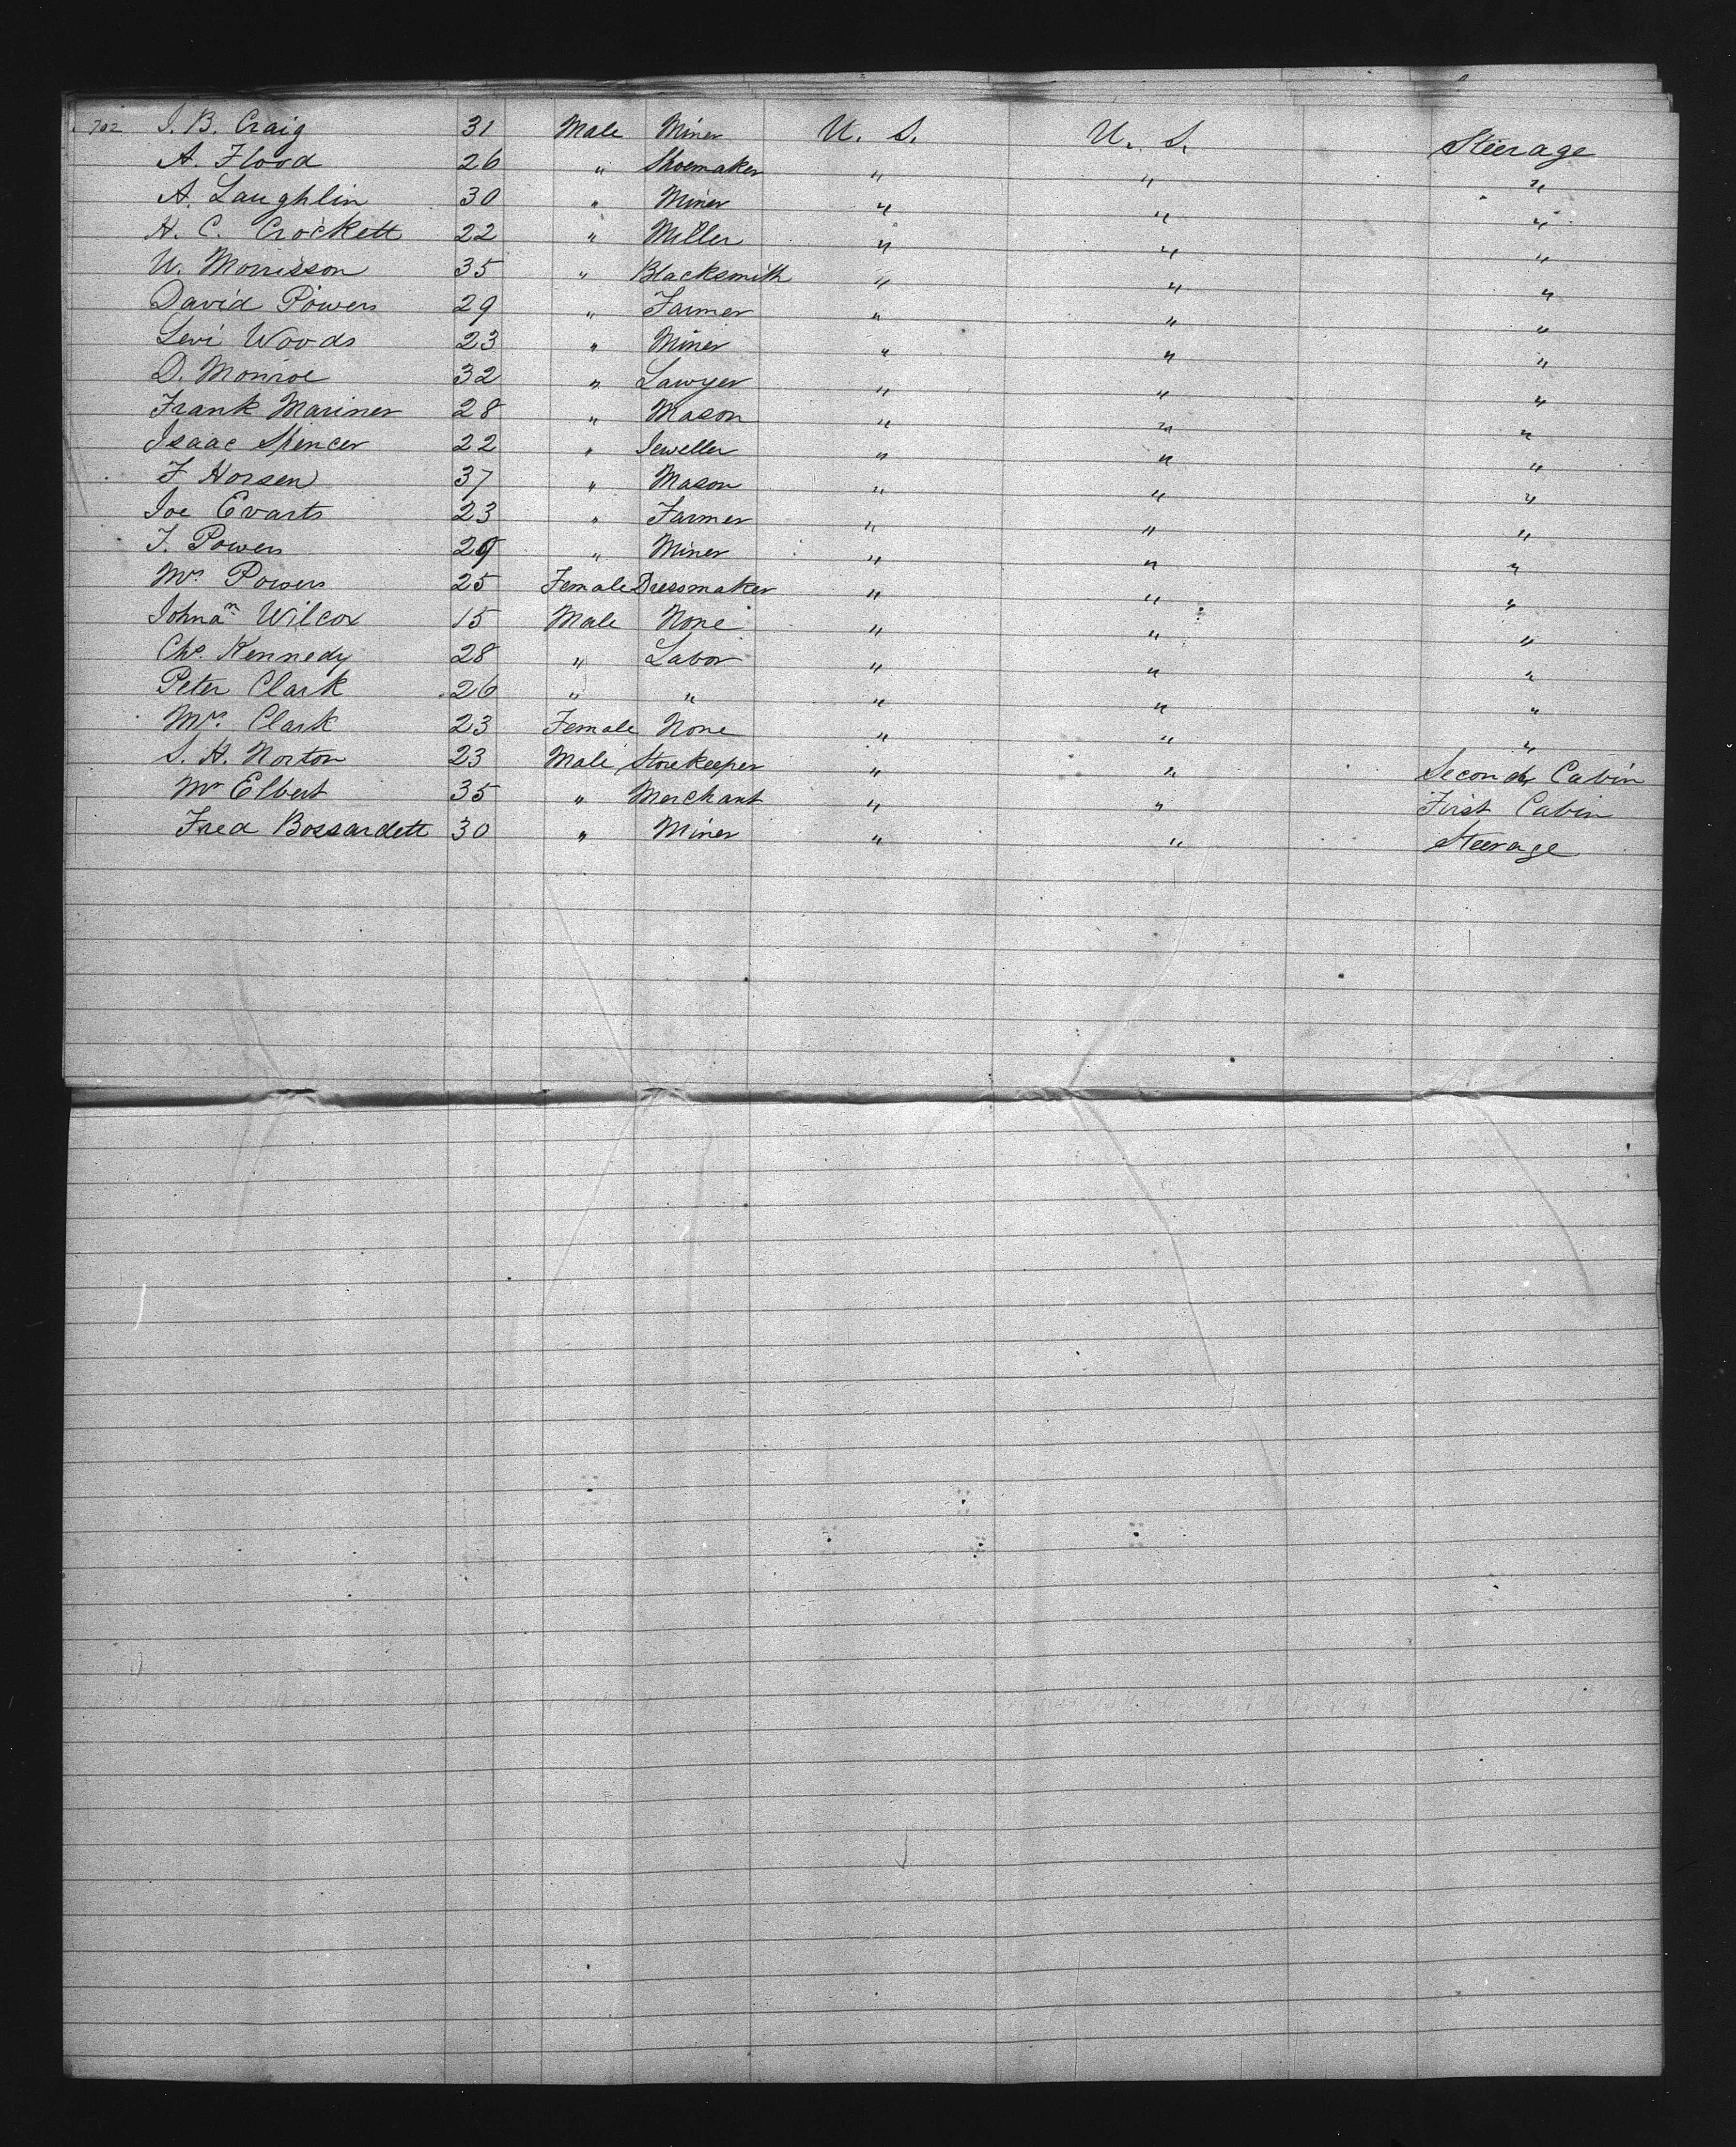 702 J. B. Craig 31 Male Miner U. S. U. S. Steerage
A. Flood 26 " Shoemaker " " "
A. Laughlin 30 " Miner " " "
H. C. Crockett 22 " Miller " " "
W. Morrisson 35 " Blacksmith " " "
David Powers 29 " Farmer " " "
Levi Woods 23 " Miner " " "
D. Monroe 32 " Lawyer " " "
Frank Mariner 28 " Mason " " "
Isaac Spencer 22 " Jeweller " " "
F Horsen 37 " Mason " " "
Joe Evarts 23 " Farmer " " "
J. Powers 29 " Miner " " "
Mrs Powers 25 Female Dressmaker " " "
Johnan Wilcox 15 Male None " " "
Chs. Kennedy 28 " Labor " " "
Peter Clark 26 " " " " "
Mrs. Clark 23 Female None " " "
S. H. Norton 23 Male Storekeeper " " Second Cabin
Mr Elbert 35 " Merchant " " First Cabin
Fred Bossardett 30 " Miner " " Steerage